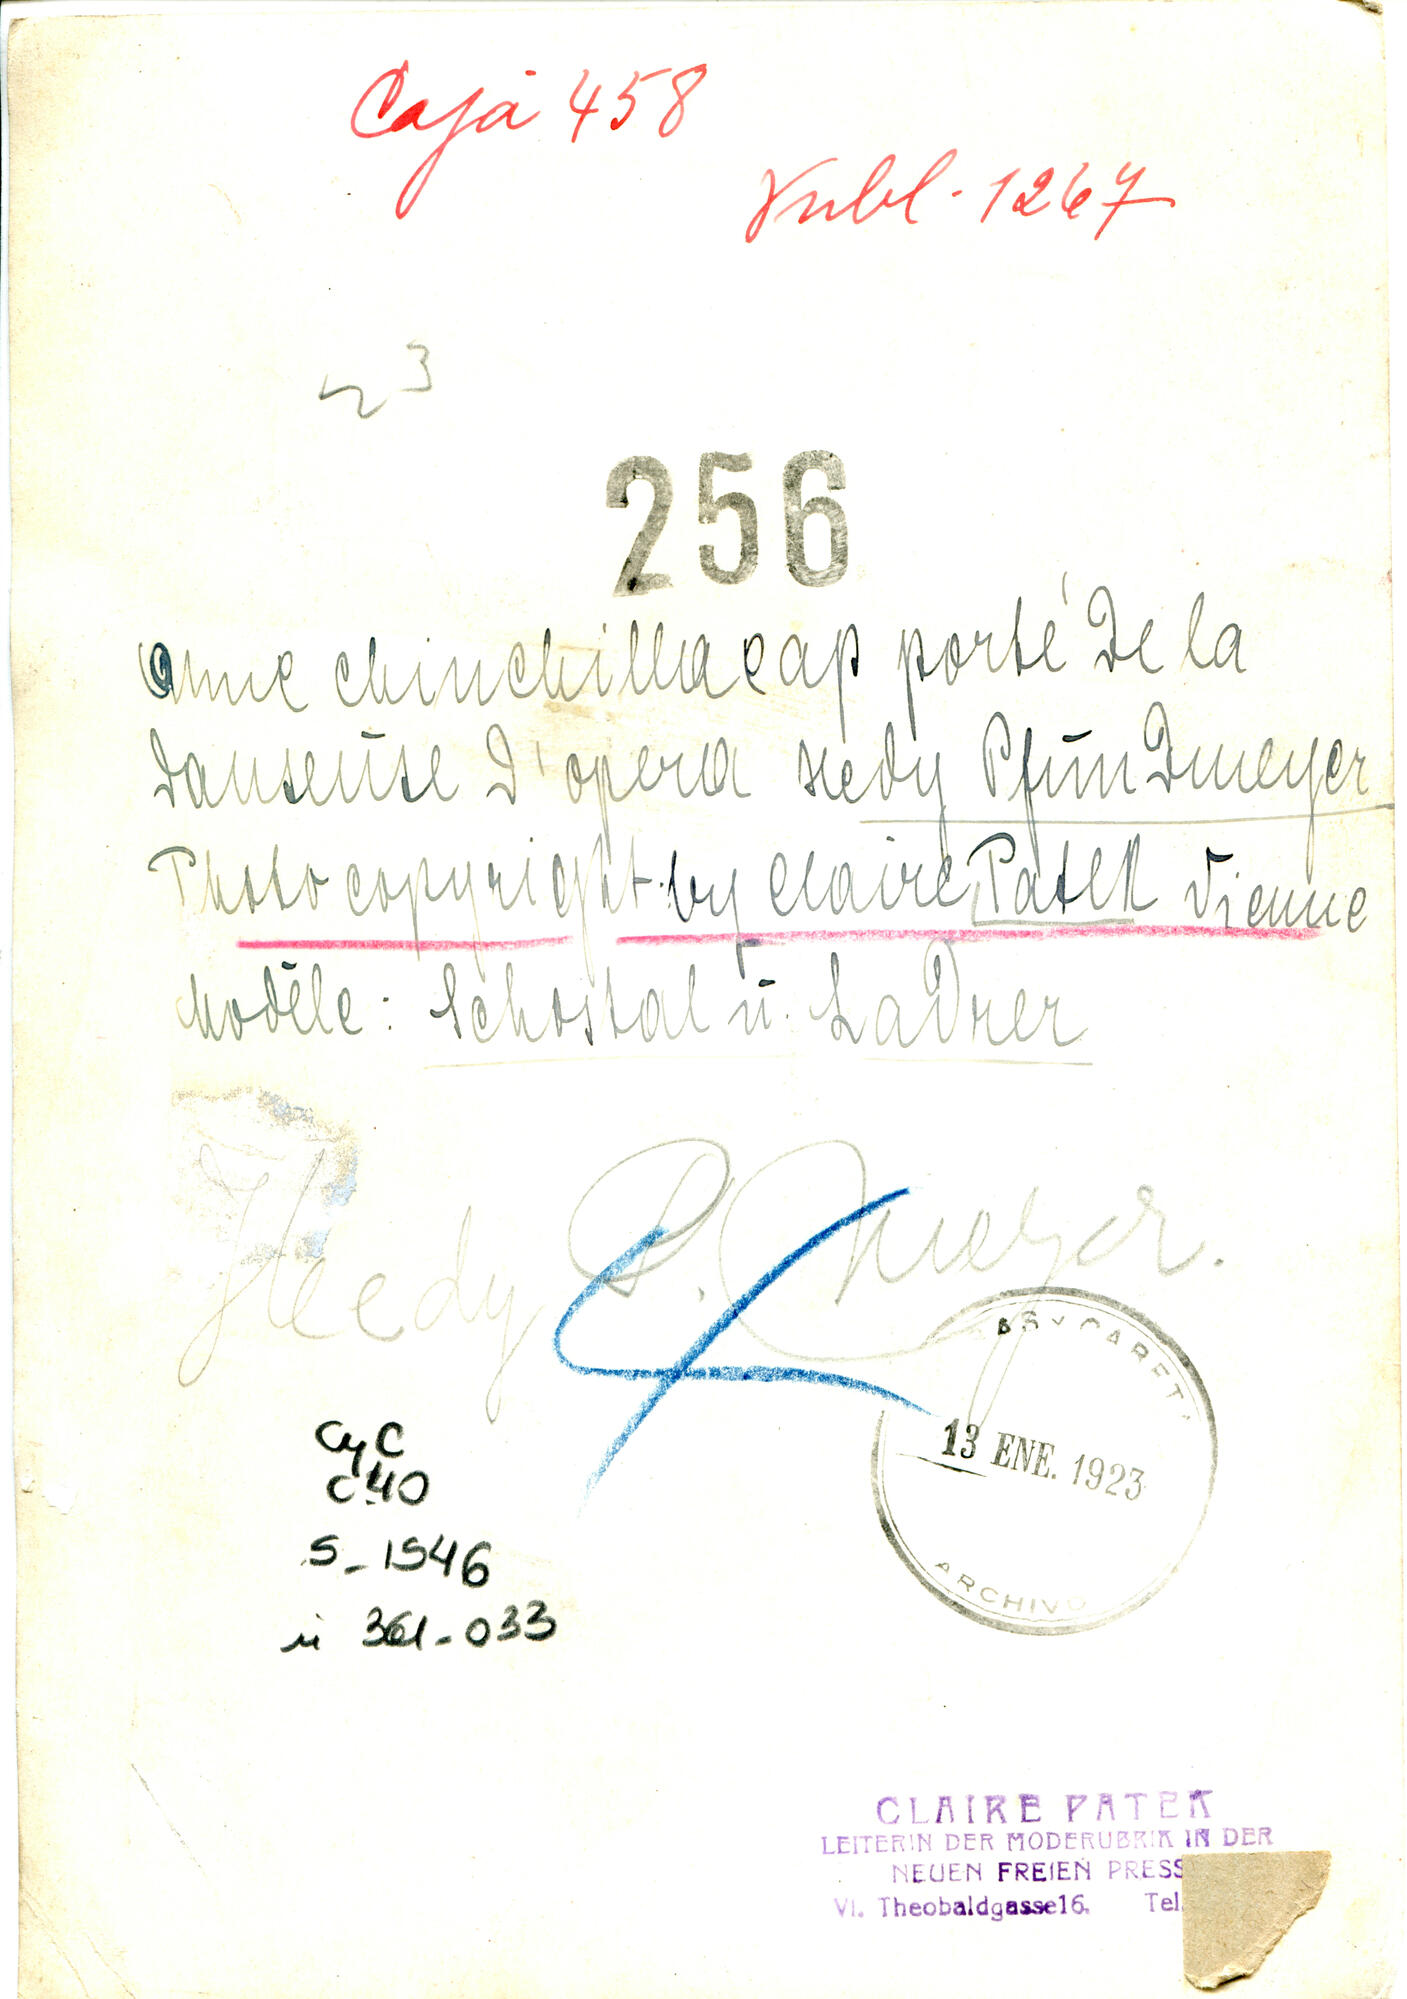 Caja 458
Publ. 1267
3
256
Une chinchilla cap porté de la
danseuse d'opera Hedy Pfundmeyer
Photo copyright by Claire Patek Vienne
Modèle: Schostal u. Ladner
Hedy P. Meyer.
AS Y CARET
13 ENE. 1923
ARCHIVO
CyC
C.40
S-1546
n 361-033
CLAIRE PATEK
LEITERIN DER MODERUBRIK IN DER
NEUEN FREIEN PRESS
VI. Theobaldgasse16. Tel.